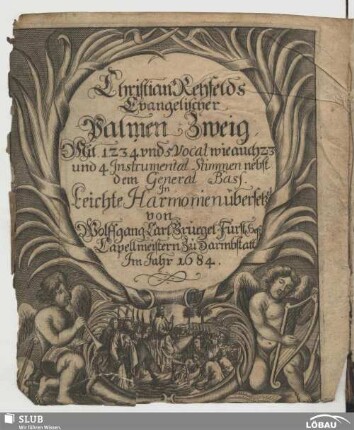 Christian Rehfelds
Evangelischer
Palmen Zweig
Mit 1 2 3 4 und 5 Vocal wie auch 2 3
und 4 Instrumental Stimmen nebst
dem General Bass.
In
Leichte Harmonien übersetzt
von
Wolffgang Carl Briegel Fürstl. Heß
Capellmeistern Zu Darmbstatt
Im Jahr 1684.
SLUB
Wir führen Wissen.
LÖBAU